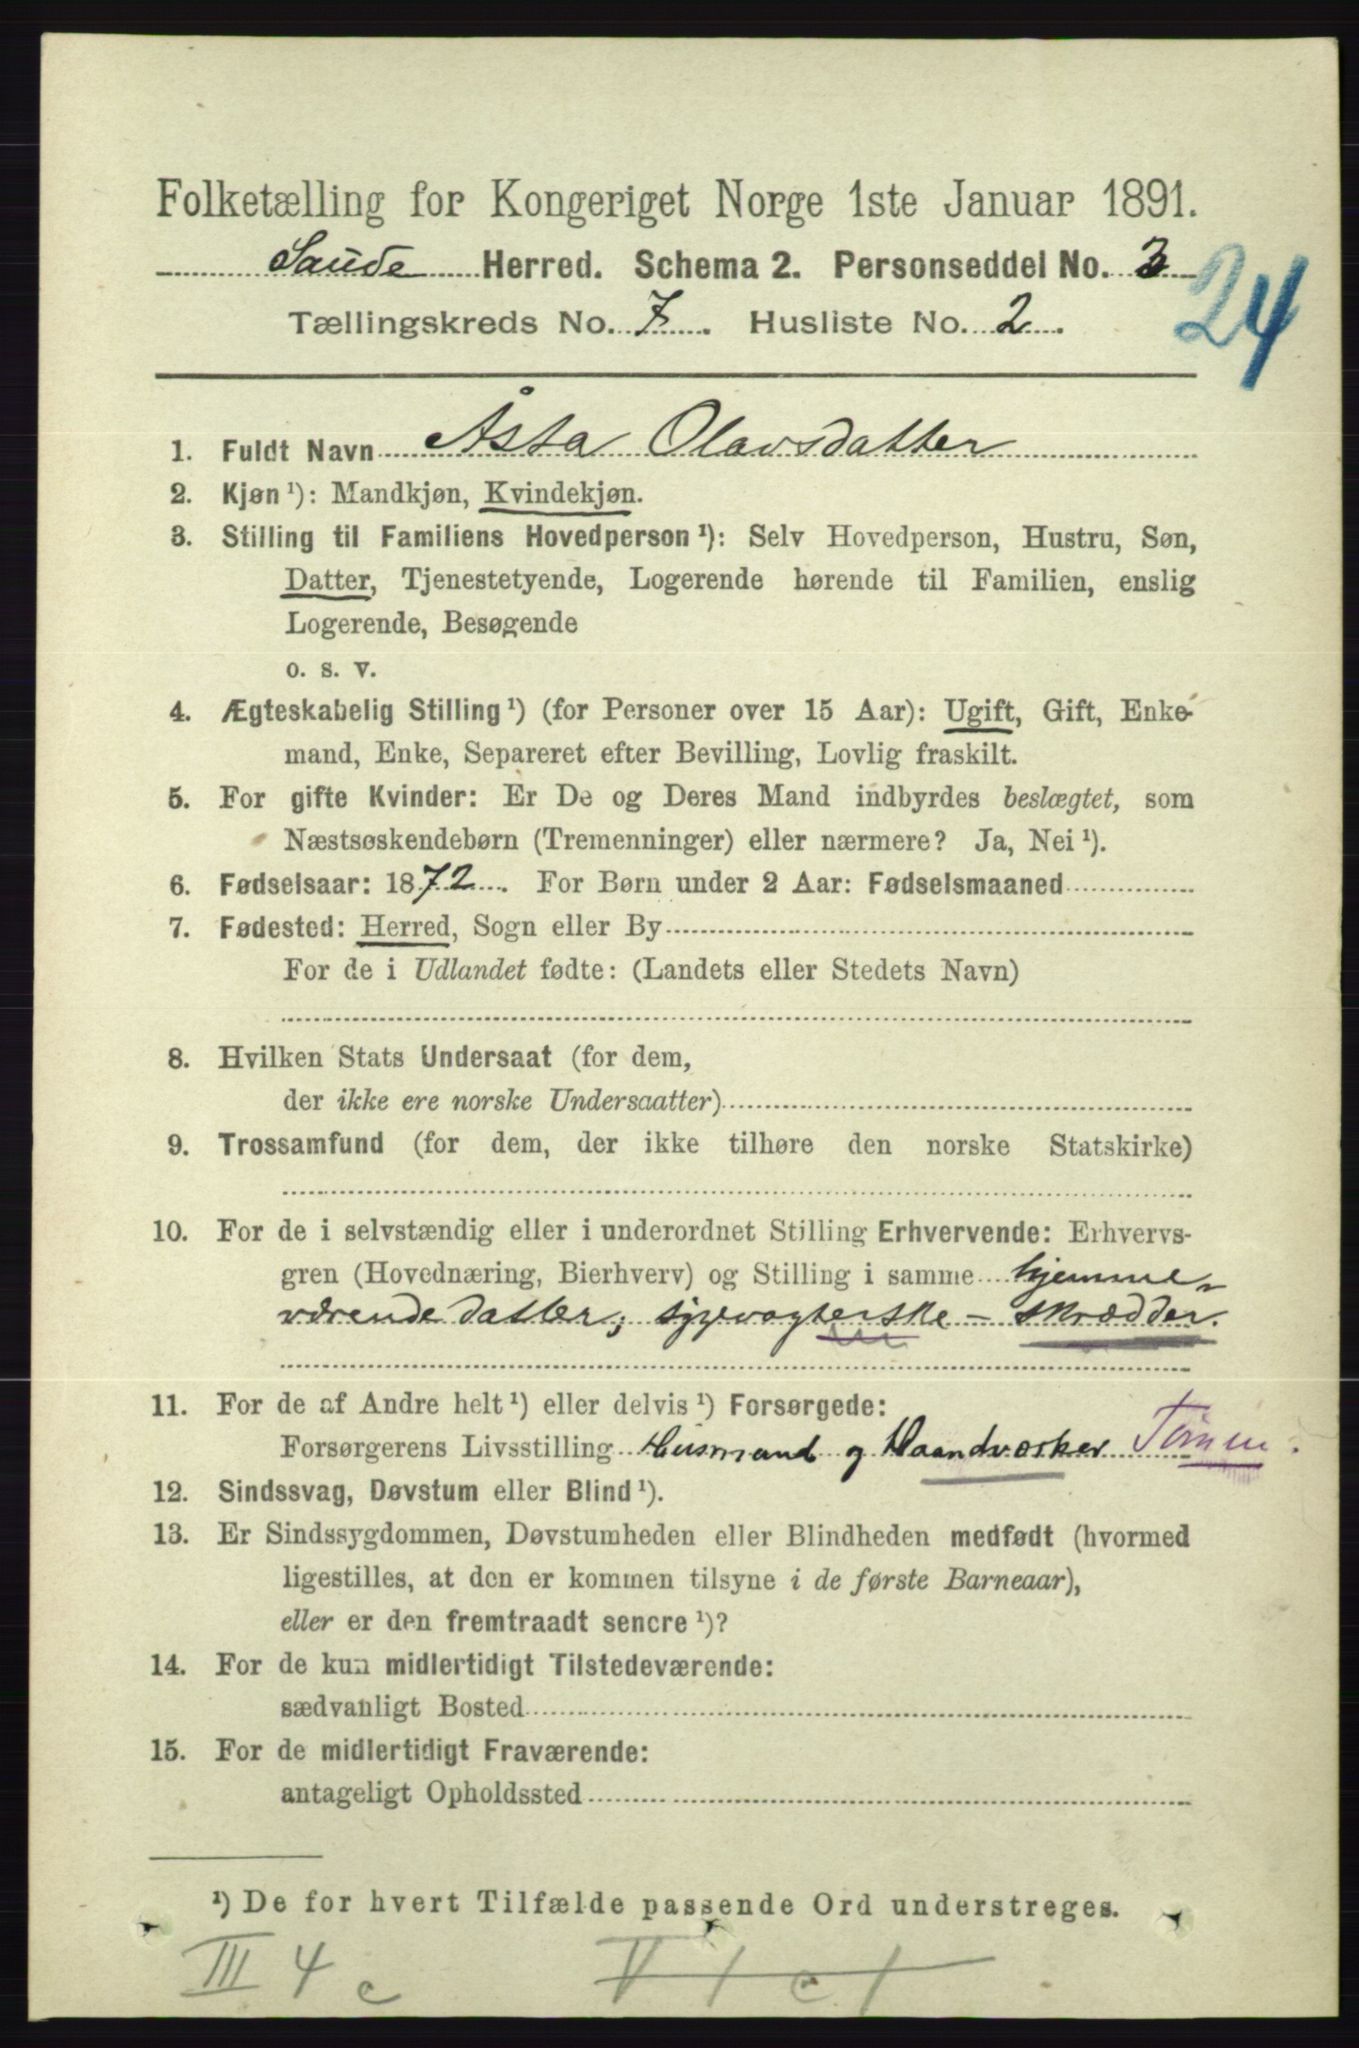 Folketælling for Kongeriget Norge 1ste Januar 1891.
Saude Herred. Schema 2. Personseddel No. 3
24
Tællingskreds No. 7. Husliste No. 2.
1. Fuldt Navn Åsta Olavsdatter
2. Kjøn ¹): Mandkjøn, Kvindekjøn.
3. Stilling til Familiens Hovedperson ¹): Selv Hovedperson, Hustru, Søn,
Datter, Tjenestetyende, Logerende hørende til Familien, enslig
Logerende, Besøgende
o. s. v.
4. Ægteskabelig Stilling ¹) (for Personer over 15 Aar): Ugift, Gift, Enke-
mand, Enke, Separeret efter Bevilling, Lovlig fraskilt.
5. For gifte Kvinder: Er De og Deres Mand indbyrdes beslægtet, som
Næstsøskendebørn (Tremenninger) eller nærmere? Ja, Nei ¹).
6. Fødselsaar: 1872. For Børn under 2 Aar: Fødselsmaaned
7. Fødested: Herred, Sogn eller By
For de i Udlandet fødte: (Landets eller Stedets Navn)
8. Hvilken Stats Undersaat (for dem,
der ikke ere norske Undersaatter)
9. Trossamfund (for dem, der ikke tilhøre den norske Statskirke)
10. For de i selvstændig eller i underordnet Stilling Erhvervende: Erhvervs-
gren (Hovednæring, Bierhverv) og Stilling i samme hjemme-
værende datter; sypevogterske - skrædder.
11. For de af Andre helt ¹) eller delvis ¹) Forsørgede:
Forsørgerens Livsstilling Husmand og Haandværker Tømm.
12. Sindssvag, Døvstum eller Blind ¹).
13. Er Sindssygdommen, Døvstumheden eller Blindheden medfødt (hvormed
ligestilles, at den er kommen tilsyne i de første Barneaar),
eller er den fremtraadt senere ¹)?
14. For de kun midlertidigt Tilstedeværende:
sædvanligt Bosted
15. For de midlertidigt Fraværende:
antageligt Opholdssted
¹) De for hvert Tilfælde passende Ord understreges.
III 4 c V 1 c 1